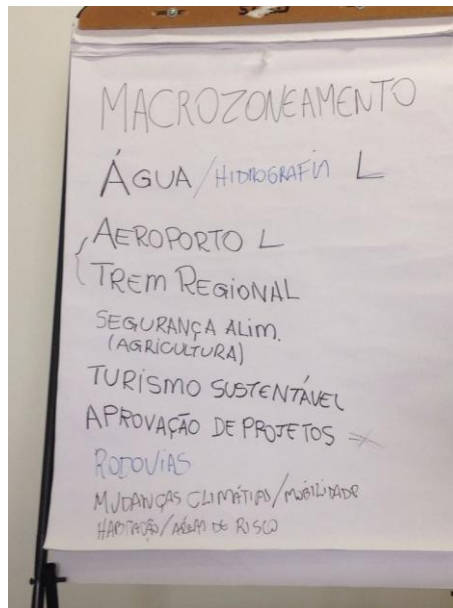 MACROZONEAMENTO
ÁGUA/HIDROGRAFIA L
AEROPORTO L
TREM REGIONAL
SEGURANÇA ALIM.
(AGRICULTURA)
TURISMO SUSTENTÁVEL
APROVAÇÃO DE PROJETOS
RODOVIAS
MUDANÇAS CLIMÁTICAS/MOBILIDADE
HABITAÇÃO/ÁREAS DE RISCO